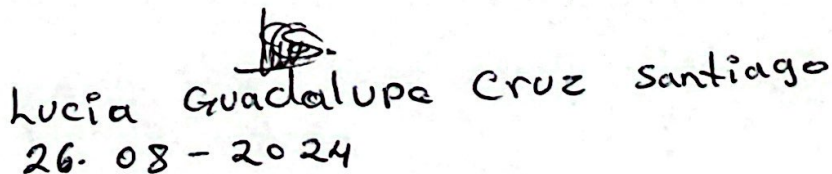 Lucia Guadalupe Cruz Santiago
26. 08 - 2024